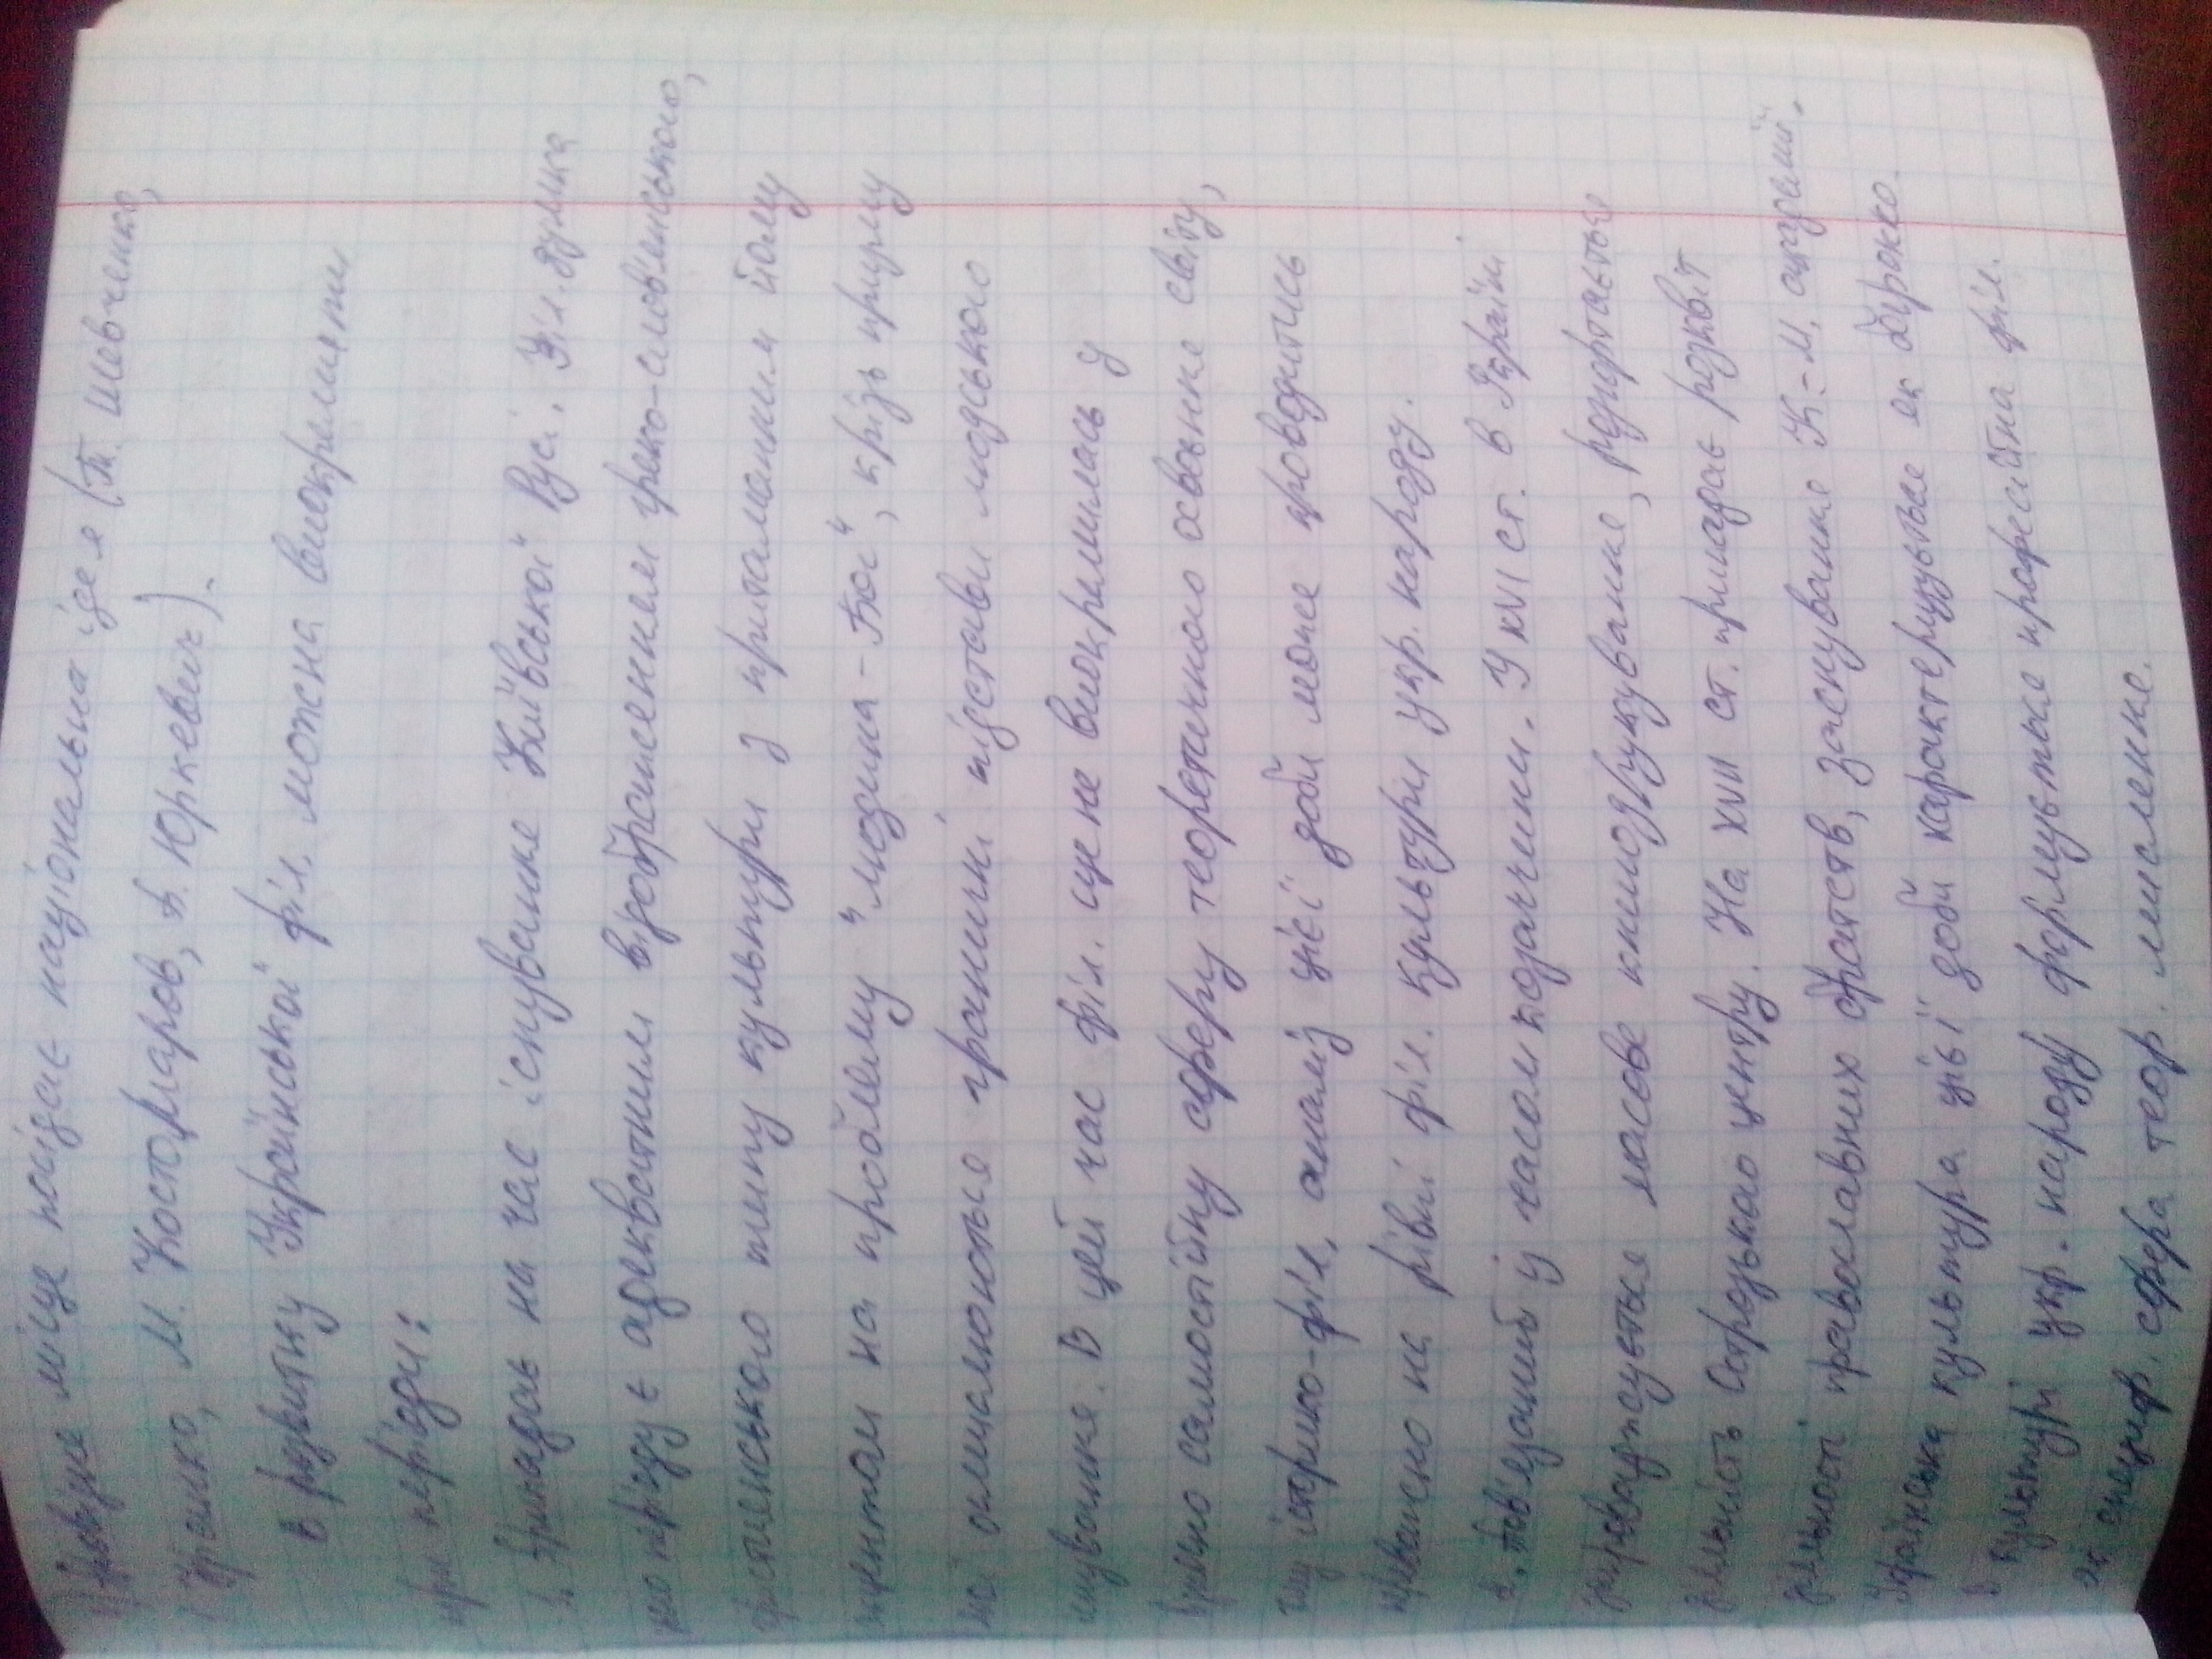 Провідне місце посідає національна ідея (Т. Шевченко,
І. Франко, М. Костомаров, П. Юркевич).
В розвитку Української філ. можна виокремити
три періоди:
1. Припадає на час існування Київської Русі. Філ. думка
цього періоду є адекватним відображенням греко-слов'янського,
християнського типу культури з притаманним йому
акцентом на проблему "людина - Бог", крізь призму
якої осмислюються граничні підстави людського
існування. В цей час філ. ще не виокремилась у
відносно самостійну сферу теоретичного освоєння світу,
тому історико-філ. аналіз цієї доби може проводитись
переважно на рівні філ. культури укр. народу.
2. Пов'язаний із часом козаччини. У XVI ст. в Україні
запроваджується масове книгодрукування, розгортається
діяльність Острозького центру. На XVII ст. припадає розквіт
діяльності православних братств, заснування К.-М. академії.
Українська культура цієї доби характеризується як барокко.
В культурі укр. народу формується професійна філ.
як специф. сфера теор. мислення.